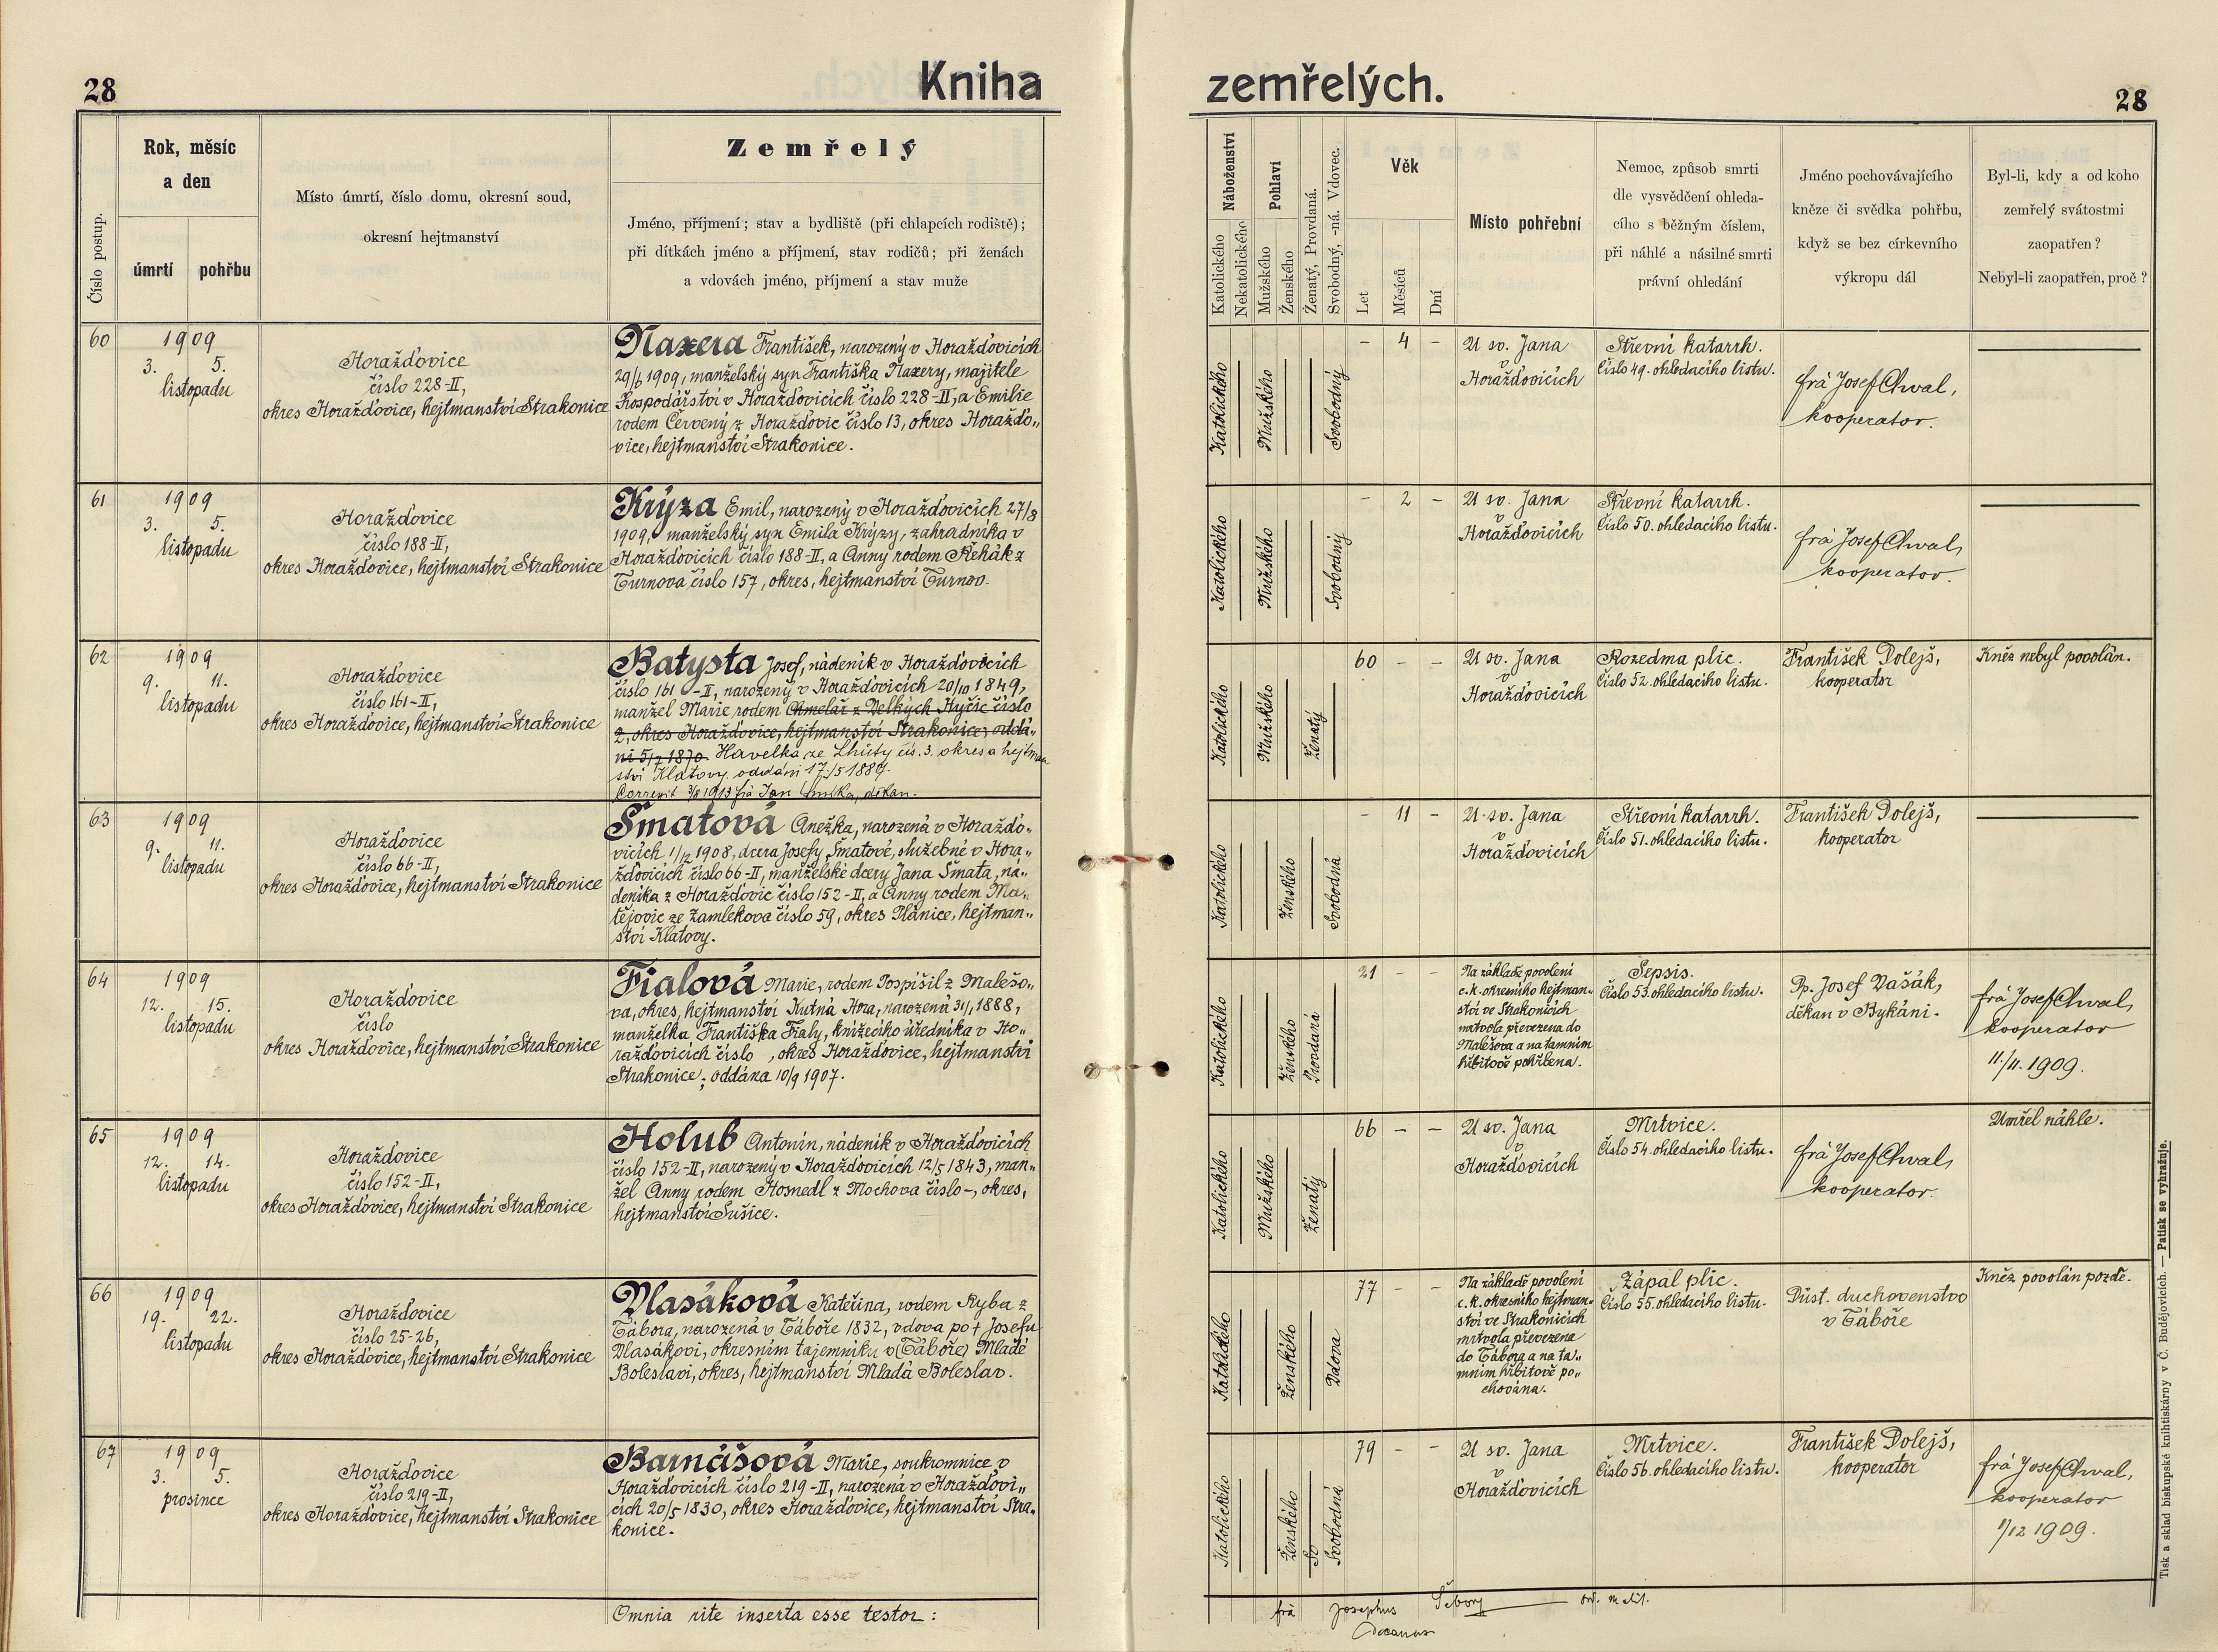 28
Kniha
zemřelých.
28
Číslo postup.
Rok, měsíc
a den
úmrtí
pohřbu
Místo úmrtí, číslo domu, okresní soud,
okresní hejtmanství
Zemřelý
Jméno, příjmení; stav a bydliště (při chlapcích rodiště);
při dítkách jméno a příjmení, stav rodičů; při ženách
a vdovách jméno, příjmení a stav muže
Náboženství
Katolického
Nekatolického
Pohlaví
Mužského
Ženského
Ženatý, Provdaná.
Svobodný, -ná. Vdovec.
Věk
Let
Měsíců
Dní
Místo pohřební
Nemoc, způsob smrti
dle vysvědčení ohleda-
cího s běžným číslem,
při náhlé a násilné smrti
právní ohledání
Jméno pochovávajícího
kněze či svědka pohřbu,
když se bez církevního
výkropu dál
Byl-li, kdy a od koho
zemřelý svátostmi
zaopatřen?
Nebyl-li zaopatřen, proč?
60
1909
3. 5.
listopadu
Horažďovice
číslo 228-II,
okres Horažďovice, hejtmanství Strakonice
Naxera František, narozený v Horažďovicích
29/6 1909, manželský syn Františka Naxery, majitele
hospodářství v Horažďovicích číslo 228-II, a Emilie
rodem Červený z Horažďovic číslo 13, okres Horažďo„
vice, hejtmanství Strakonice.
Katolického
Mužského
Svobodný
- 4 -
U sv. Jana
v
Horažďovicích
Střevní katarrh.
Číslo 49. ohledacího listu.
frá Josef Chval,
kooperator.
61
1909
3. 5.
listopadu
Horažďovice
číslo 188-II,
okres Horažďovice, hejtmanství Strakonice
Krýza Emil, narozený v Horažďovicích 27/8
1909, manželský syn Emila Krýzy, zahradníka v
Horažďovicích číslo 188-II, a Anny rodem Řehák z
Turnova číslo 157, okres, hejtmanství Turnov.
Katolického
Mužského
Svobodný
- 2 -
U sv. Jana
v
Horažďovicích
Střevní katarrh.
Číslo 50. ohledacího listu.
frá Josef Chval,
kooperator.
62
1909
9. 11.
listopadu
Horažďovice
číslo 161-II,
okres Horažďovice, hejtmanství Strakonice
Batysta Josef, nádeník v Horažďovicích
číslo 161-II, narozený v Horažďovicích 20/10 1849,
manžel Marie rodem Chmelař z Velkých Hyčic číslo
2, okres Horažďovice, hejtmanství Strakonice; oddá„
ni 5/7 1870. Havelka ze Lhůty čís. 3. okres a hejtman„
ství Klatovy. oddáni 17./5 1887.
Correxit 3/8 1913 frá Jan, děkan.
Katolického
Mužského
Ženatý
60 - -
U sv. Jana
v
Horažďovicích
Rozedma plic.
Číslo 52. ohledacího listu.
František Dolejš,
kooperator
Kněz nebyl povolán.
63
1909
9. 11.
listopadu
Horažďovice
číslo 66-II,
okres Horažďovice, hejtmanství Strakonice
Šmatová Anežka, narozená v Horažďo„
vicích 1/12 1908, dcera Josefy Šmatové, služebné v Hora„
žďovicích číslo 66-II, manželské dcery Jana Šmata, ná„
deníka z Horažďovic číslo 152-II, a Anny rodem Ma„
tějovic ze Žamlekova číslo 59, okres Plánice, hejtman„
ství Klatovy.
Katolického
Ženského
Svobodná
- 11 -
U sv. Jana
v
Horažďovicích
Střevní katarrh.
Číslo 51. ohledacího listu.
František Dolejš,
kooperator
64
1909
12. 15.
listopadu
Horažďovice
číslo
okres Horažďovice, hejtmanství Strakonice
Fialová Marie, rodem Pospíšil z Malešo„
va, okres, hejtmanství Kutná Hora, narozená 31/1 1888,
manželka Františka Fialy, knížecího úředníka v Ho„
ražďovicích číslo , okres Horažďovice, hejtmanství
Strakonice; oddána 10/9 1907.
Katolického
Ženského
Provdaná
21 - -
Na základě povolení
c.k. okresního hejtman„
ství ve Strakonicích
mrtvola převezena do
Malešova a na tamním
hřbitově pohřbena.
Sepsis.
Číslo 53. ohledacího listu.
Pp. Josef Vašák,
děkan v Bykáni.
frá Josef Chval,
kooperator
11./11. 1909.
65
1909
12. 14.
listopadu
Horažďovice
číslo 152-II,
okres Horažďovice, hejtmanství Strakonice
Holub Antonín, nádeník v Horažďovicích
číslo 152-II, narozený v Horažďovicích 12/5 1843, man„
žel Anny rodem Hosnedl z Mochova číslo -, okres,
hejtmanství Sušice.
Katolického
Mužského
Ženatý
66 - -
U sv. Jana
v
Horažďovicích
Mrtvice.
Číslo 54. ohledacího listu.
frá Josef Chval,
kooperator.
Umřel náhle.
66
1909
19. 22.
listopadu
Horažďovice
číslo 25-26,
okres Horažďovice, hejtmanství Strakonice
Vlasáková Kateřina, rodem Ryba z
Tábora, narozená v Táboře 1832, vdova po † Josefu
Vlasákovi, okresním tajemníku v (Táboře) Mladé
Boleslavi, okres, hejtmanství Mladá Boleslav.
Katolického
Ženského
Vdova
77 - -
Na základě povolení
c.k. okresního hejtman„
ství ve Strakonicích
mrtvola převezena
do Tábora a na ta„
mním hřbitově po„
chována.
Zápal plic.
Číslo 55. ohledacího listu.
Důst. duchovenstvo
v Táboře
Kněz povolán pozdě.
67
1909
3. 5.
prosince
Horažďovice
číslo 219-II,
okres Horažďovice, hejtmanství Strakonice
Barnášová Marie, soukromnice v
Horažďovicích číslo 219-II, narozená v Horažďovi„
cích 20/5 1830, okres Horažďovice, hejtmanství Stra„
konice.
Katolického
Ženského
So
Svobodná
79 - -
U sv. Jana
v
Horažďovicích
Mrtvice.
Číslo 56. ohledacího listu.
František Dolejš,
kooperator
frá Josef Chval,
kooperator
1/12 1909.
Omnia rite inserta esse testor:
frá Josephus Šebory ord. melit.
Decanus
Tisk a sklad biskupské knihtiskárny v Č. Budějovicích. — Patisk se vyhražuje.